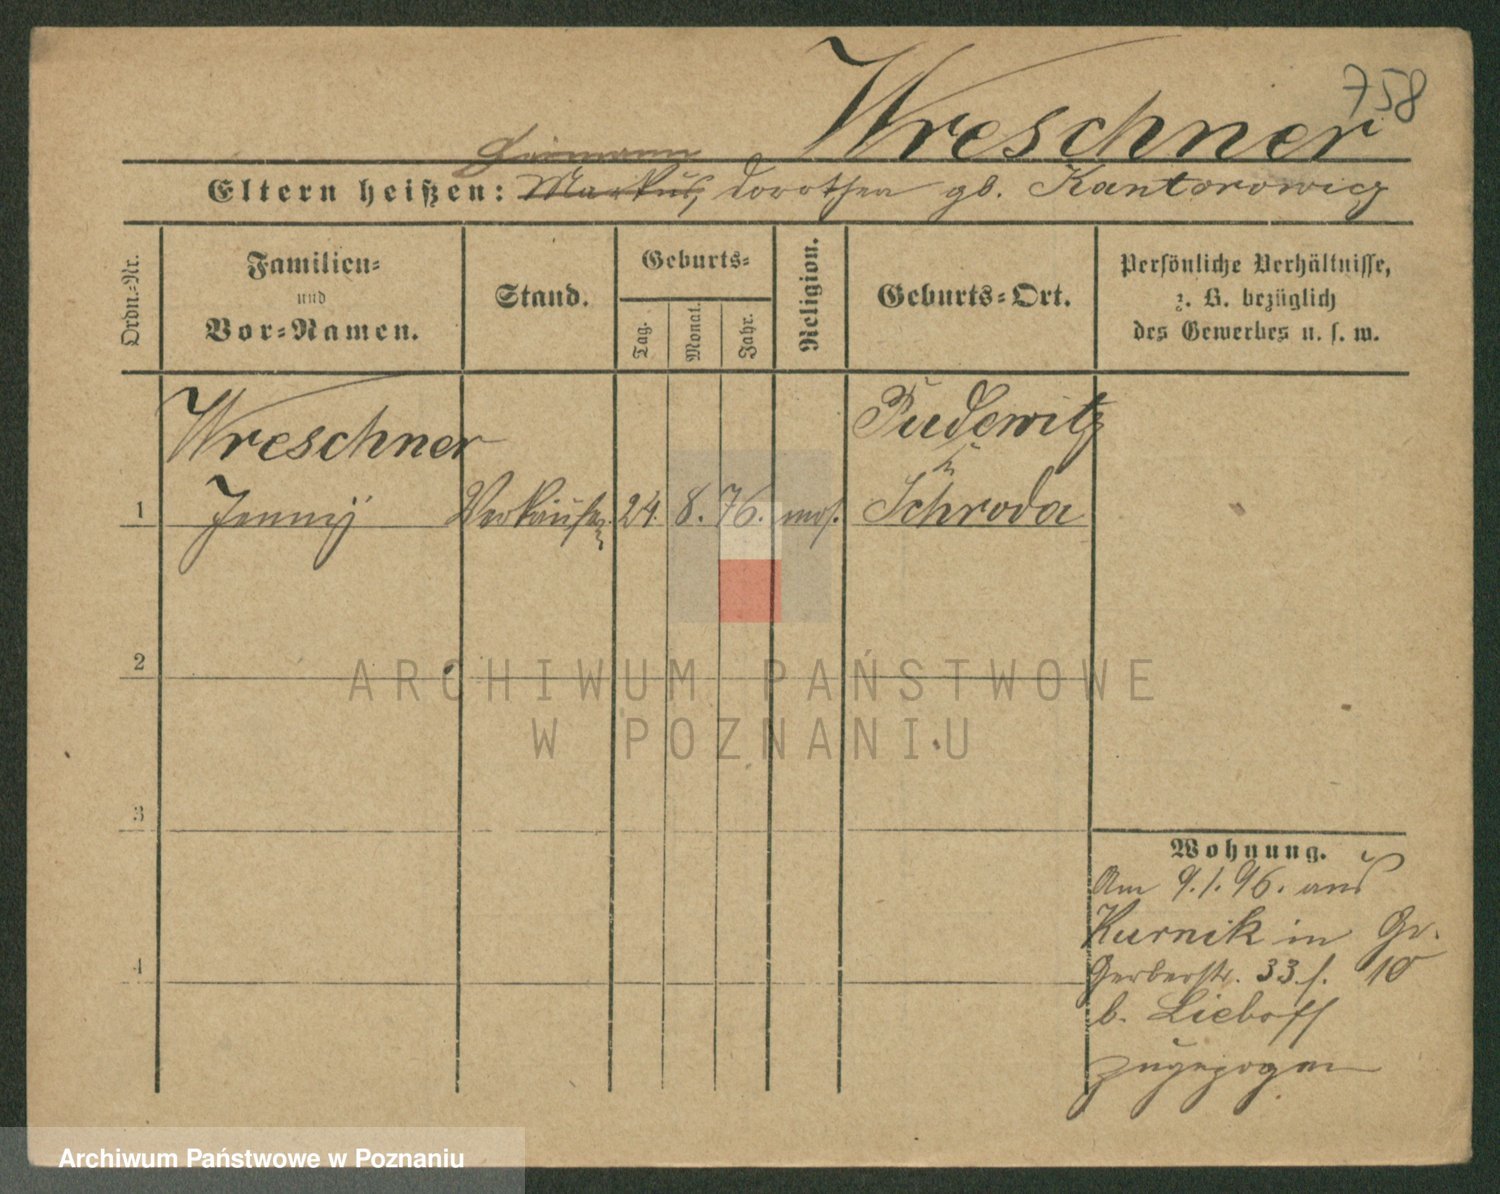 758
Wreschner
Hermann
Eltern heißen: Markus, Dorothea gb. Kantorowicz
Ordn.-Nr.
Familien-
und
Vor-Namen.
Stand.
Geburts-
Tag.
Monat.
Jahr.
Religion.
Geburts-Ort.
Persönliche Verhältnisse,
z. B. bezüglich
des Gewerbes u. s. w.
Wreschner Pudewitz
1 Jenny Verkäufer 24. 8. 76. mos. Schroda
2
ARCHIWUM PAŃSTWOWE
W POZNANIU
3
Wohnung.
Am 9.1.96. aus
Kurnik in Gr.
4
Gerberstr. 33. 10
b. Lieboff
zugezogen
Archiwum Państwowe w Poznaniu